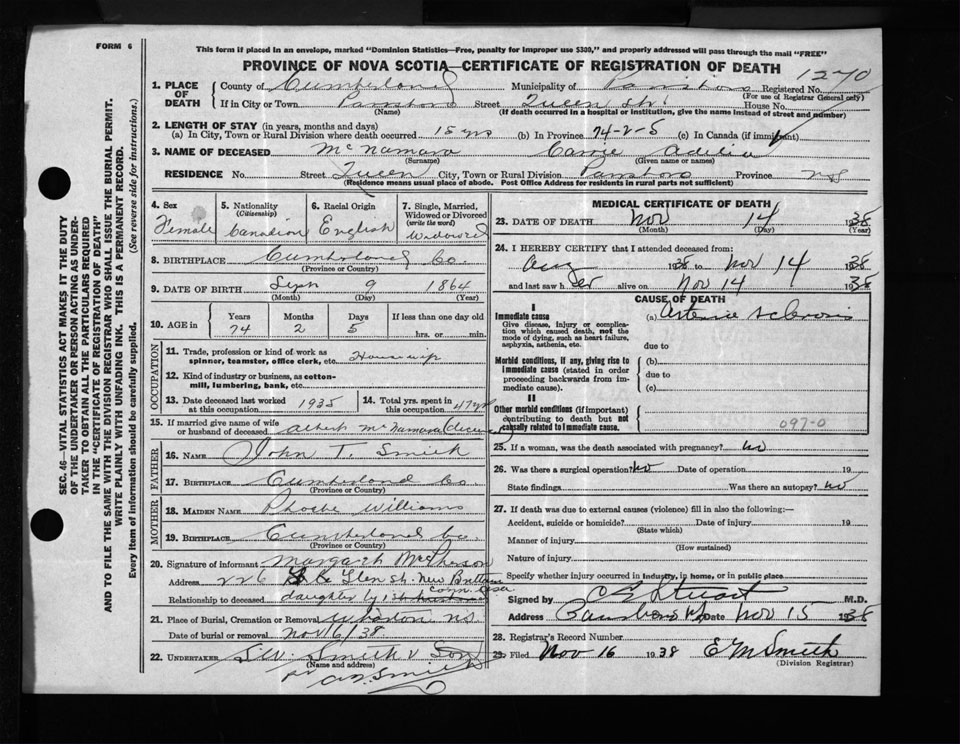 FORM 6
This form if placed in an envelope, marked "Dominion Statistics—Free, penalty for improper use $300," and properly addressed will pass through the mail "FREE"
PROVINCE OF NOVA SCOTIA—CERTIFICATE OF REGISTRATION OF DEATH
1270
1. PLACE OF DEATH
County of Cumberland Municipality of Parrsboro Registered No.
(For use of Registrar General only)
If in City or Town Parrsboro Street Queen St. House No.
(Name) (If death occurred in a hospital or institution, give the name instead of street and number)
2. LENGTH OF STAY (in years, months and days)
(a) In City, Town or Rural Division where death occurred 15 yrs (b) In Province 74-2-5 (c) In Canada (if immigrant)
3. NAME OF DECEASED McNamara Carrie Adelia
(Surname) (Given name or names)
RESIDENCE No. Street Queen City, Town or Rural Division Parrsboro Province N.S.
(Residence means usual place of abode. Post Office Address for residents in rural parts not sufficient)
4. Sex Female
5. Nationality (Citizenship) Canadian
6. Racial Origin English
7. Single, Married, Widowed or Divorced (write the word) Widowed
8. BIRTHPLACE Cumberland Co.
(Province or Country)
9. DATE OF BIRTH Sept 9 1864
(Month) (Day) (Year)
10. AGE in Years 74 Months 2 Days 5 If less than one day old hrs. or min.
OCCUPATION
11. Trade, profession or kind of work as spinner, teamster, office clerk, etc. Housewife
12. Kind of industry or business, as cotton-mill, lumbering, bank, etc.
13. Date deceased last worked at this occupation 1935
14. Total yrs. spent in this occupation 47 yrs
15. If married give name of wife or husband of deceased Albert McNamara (deceased)
FATHER
16. NAME John T. Smith
17. BIRTHPLACE Cumberland Co
(Province or Country)
MOTHER
18. MAIDEN NAME Phoebe Williams
19. BIRTHPLACE Cumberland Co.
(Province or Country)
20. Signature of informant Margaret McPherson
Address 226 Glen St. New Britain Conn. USA
Relationship to deceased daughter by 1st husband
21. Place of Burial, Cremation or Removal N.S.
Date of burial or removal Nov 16/38
22. UNDERTAKER Smith & Son
(Name and address)
Smith
MEDICAL CERTIFICATE OF DEATH
23. DATE OF DEATH Nov 14 1938
(Month) (Day) (Year)
24. I HEREBY CERTIFY that I attended deceased from:
Aug 1938 to Nov 14 1938
and last saw her alive on Nov 14 1938
CAUSE OF DEATH
I
Immediate cause
Give disease, injury or complication which caused death, not the mode of dying, such as heart failure, asphyxia, asthenia, etc.
(a) Arterio sclerosis
due to
Morbid conditions, if any, giving rise to immediate cause (stated in order proceeding backwards from immediate cause).
(b)
due to
(c)
II
Other morbid conditions (if important) contributing to death but not causally related to immediate cause.
097-0
25. If a woman, was the death associated with pregnancy? No
26. Was there a surgical operation? No Date of operation 19
State findings Was there an autopsy? No
27. If death was due to external causes (violence) fill in also the following:—
Accident, suicide or homicide? Date of injury 19
(State which)
Manner of injury
(How sustained)
Nature of injury
Specify whether injury occurred in industry, in home, or in public place
Signed by C E Stuart M.D.
Address Parrsboro NS Date Nov 15 1938
28. Registrar's Record Number
29. Filed Nov 16 1938 E M Smith
(Division Registrar)
SEC. 46—VITAL STATISTICS ACT MAKES IT THE DUTY OF THE UNDERTAKER OR PERSON ACTING AS UNDERTAKER TO OBTAIN ALL THE PARTICULARS REQUIRED IN THE "CERTIFICATE OF REGISTRATION OF DEATH" AND TO FILE THE SAME WITH THE DIVISION REGISTRAR WHO SHALL ISSUE THE BURIAL PERMIT.
WRITE PLAINLY WITH UNFADING INK. THIS IS A PERMANENT RECORD.
Every item of information should be carefully supplied. (See reverse side for instructions.)